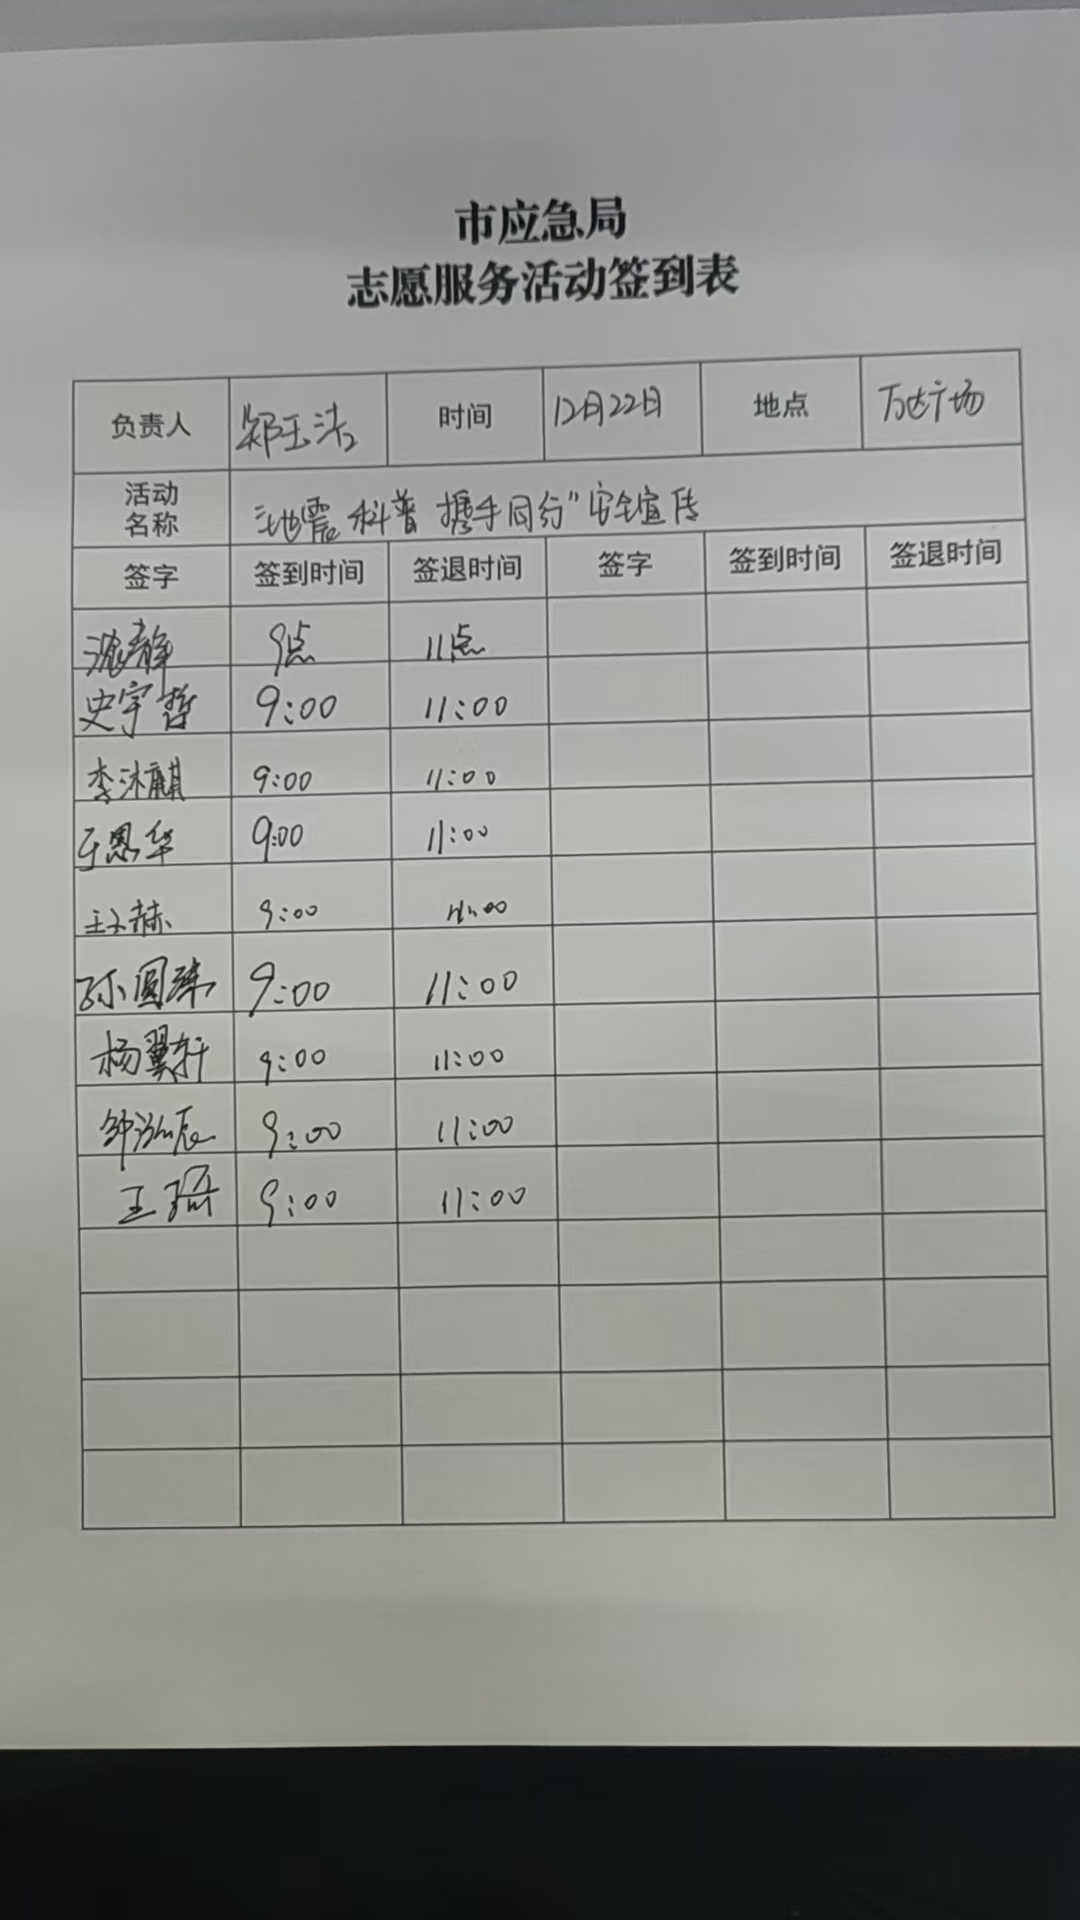 市应急局
志愿服务活动签到表
负责人 郑玉洁 时间 12月22日 地点 万达广场
活动名称 "地震科普 携手同行"安全宣传
签字 签到时间 签退时间 签字 签到时间 签退时间
静 9点 11点
史宇哲 9:00 11:00
李沐麒 9:00 11:00
于恩华 9:00 11:00
王子赫 9:00 11:00
孙圆玮 9:00 11:00
杨翼轩 9:00 11:00
辰 9:00 11:00
王瑶 9:00 11:00